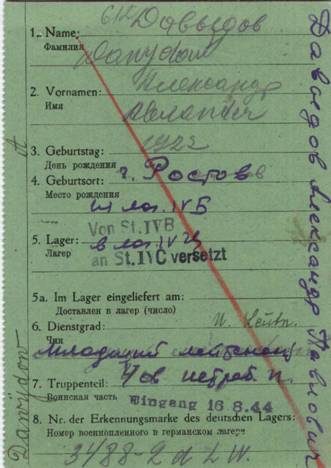 Давыдов
1. Name:
Фамилия
Dawydow
Александр
2. Vornamen:
Имя
Alexander
3. Geburtstag: 1922
День рождения
4. Geburtsort: г. Ростов
Место рождения
IV Б
Von St. IVB
5. Lager: в лаг. IV
Лагерь
an St. IVC versetzt
5a. Im Lager eingeliefert am:
Доставлен в лагерь (число)
6. Dienstgrad:
Чин
Младший лейтенант
7. Truppenteil:
Воинская часть
Eingang 16 8.44
8. Nr. der Erkennungsmarke des deutschen Lagers:
Номер военнопленного в германском лагере
3488-
Давыдов Александр Павлович
Dawydow